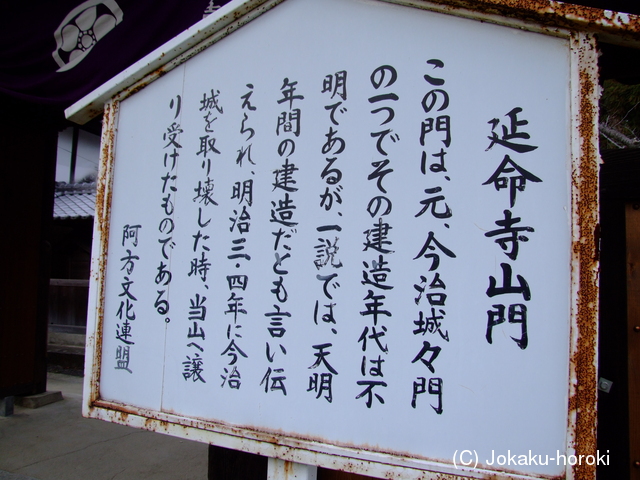 延命寺山門
この門は、元、今治城々門
の一つでその建造年代は不
明であるが、一説では、天明
年間の建造だとも言い伝
えられ、明治三、四年に今治
城を取り壊した時、当山へ譲
り受けたものである。
阿方文化連盟
(C) Jokaku-horoki